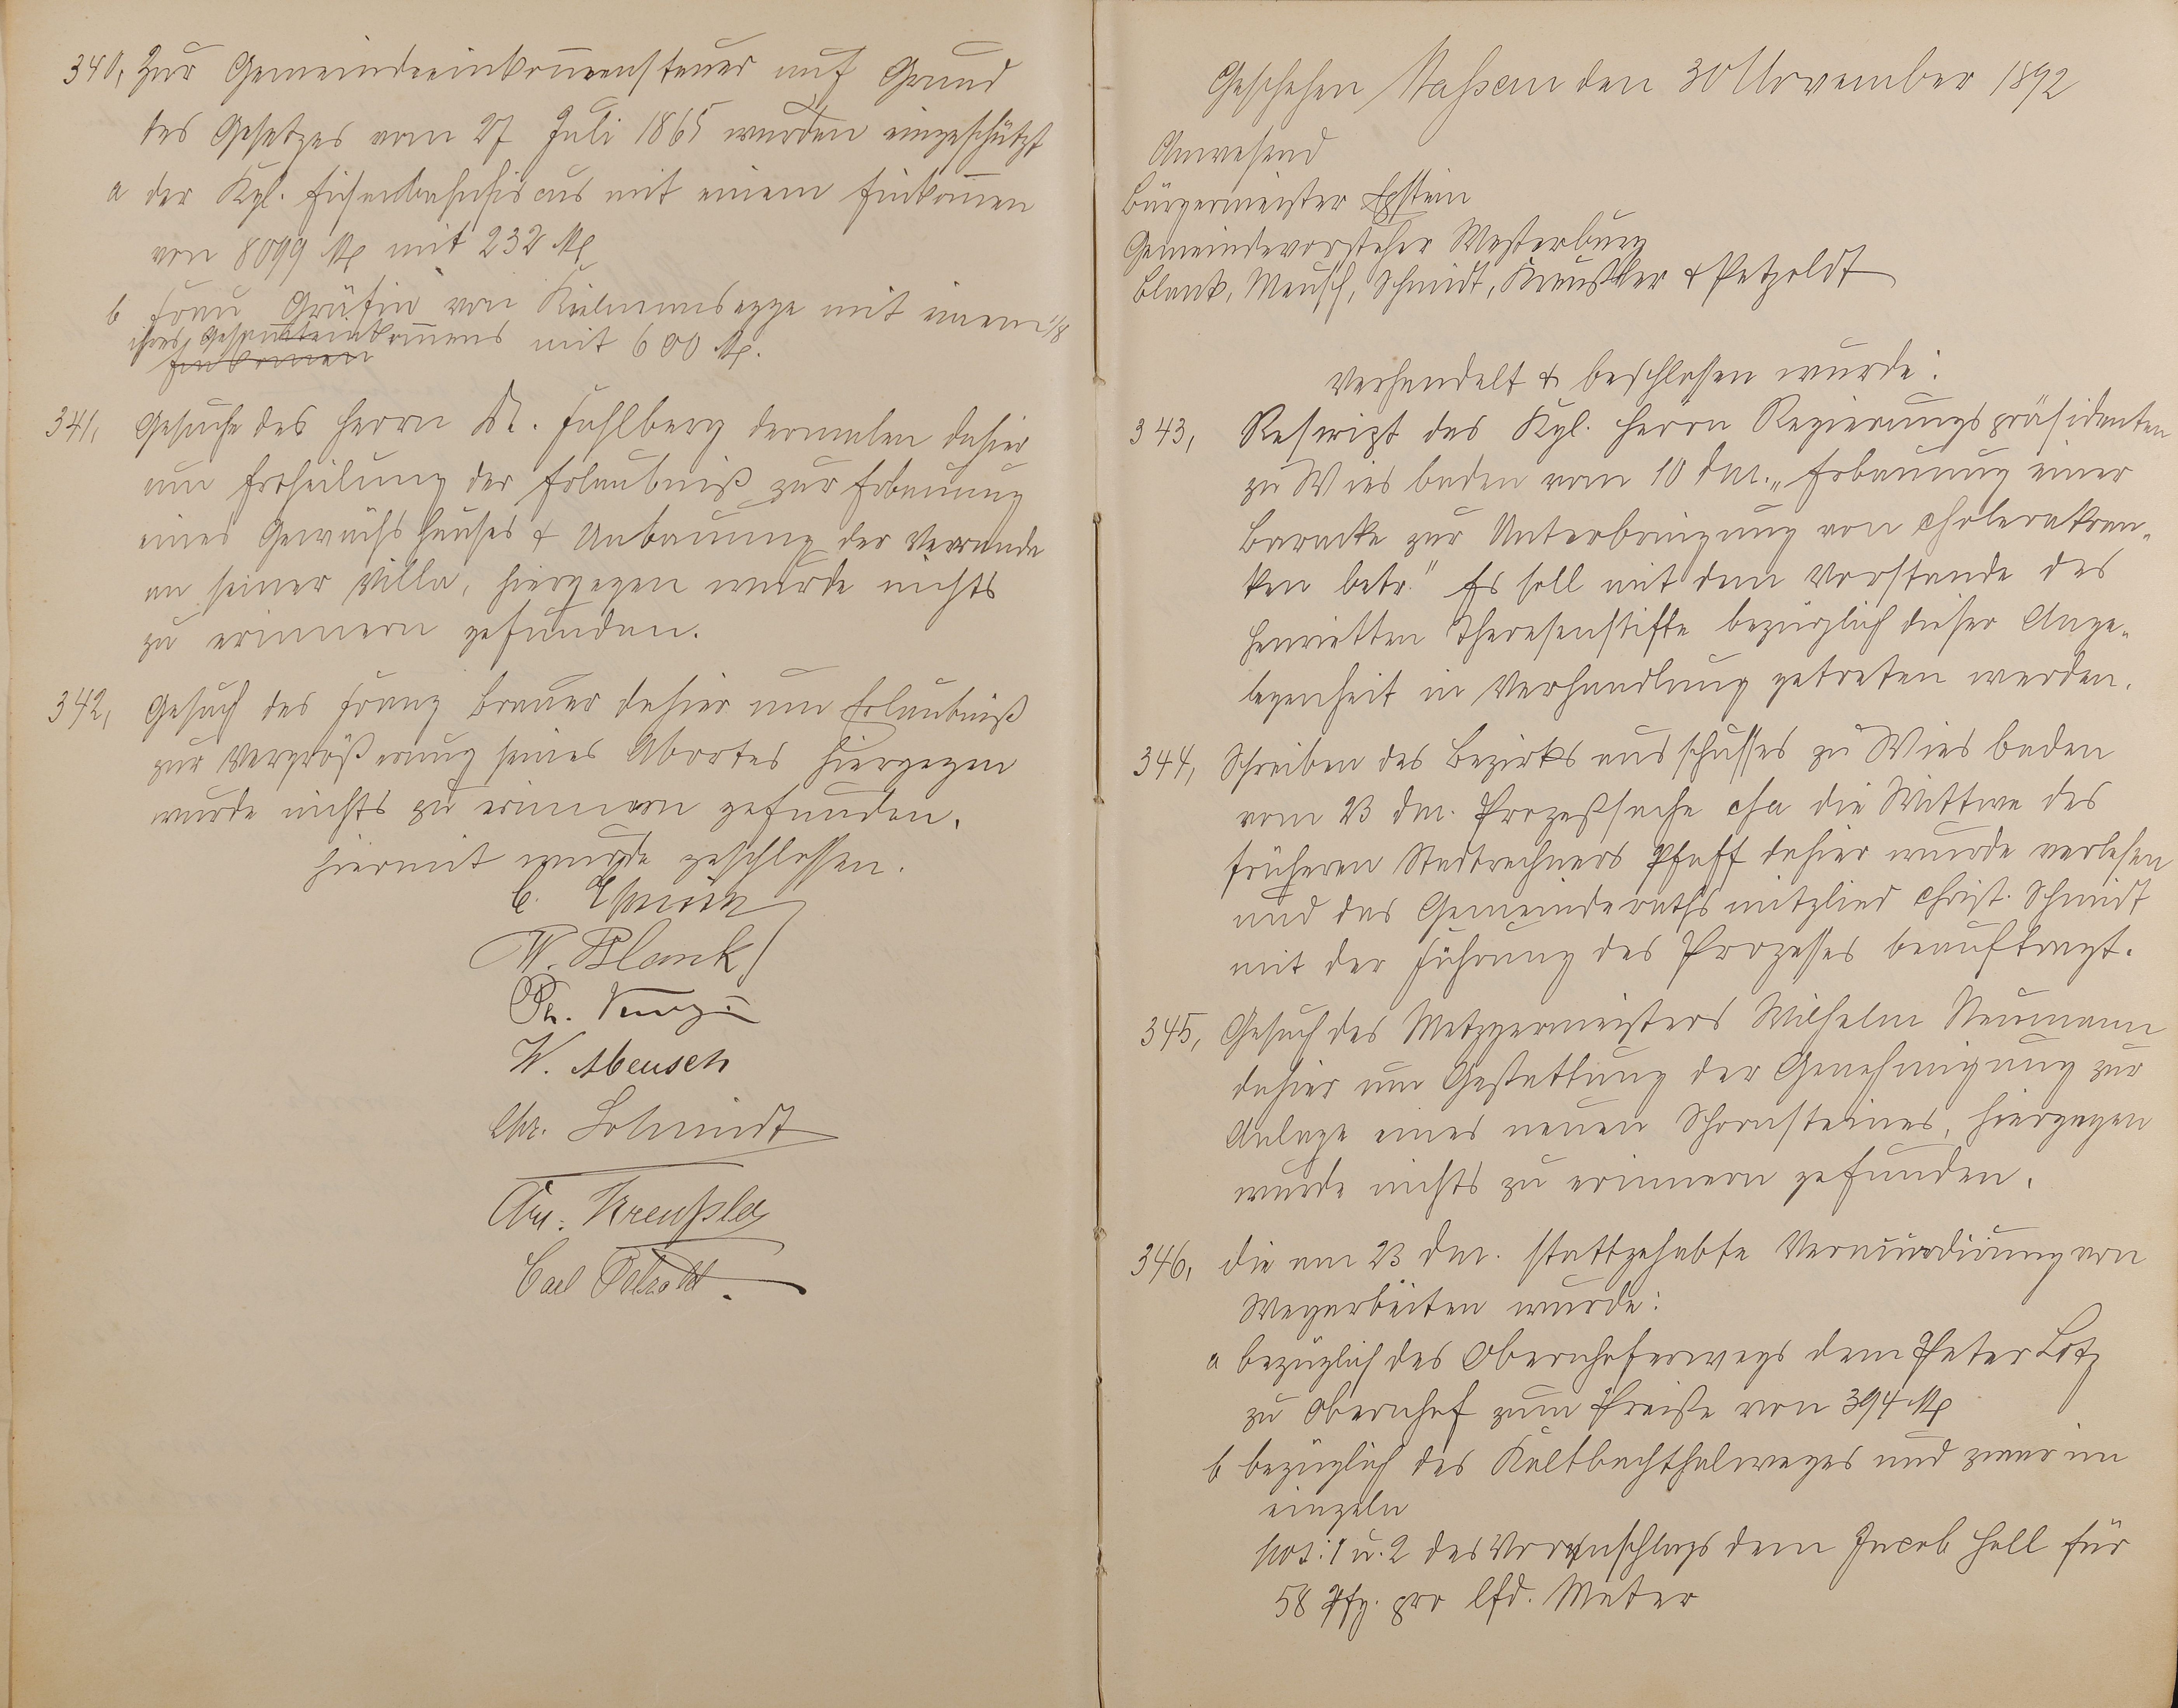 340, Zur Gemeindeeinkom̅ensteuer auf Grund
des Gesetzes vom 27 Juli 1865 wurden eingeschätzt
a der Kgl. Eisenbahnfiscus mit einem Einkom̅en
von 8099 M mit 232 M
b Frau Gräfin von Kielmannsegge mit einem 1/8
ihres Gesam̅teinkom̅ens mit 600 M.
Einkommen
341, Gesuche des Herrn Dr. Fahlberg dermalen dahier
um Ertheilung der Erlaubniß zur Erbauung
eines Gewächshauses & Anbauung der Veranda
an seiner Villa, hiergegen wurde nichts
zu erinnern gefunden.
342, Gesuch des Franz Brauer dahier um Erlaubniß
zur Vergrößerung seines Abortes hiergegen
wurde nichts zu erinnern gefunden.
Hiermit wurde geschlossen.
C. Epstein
W. Blank
Ph.
W. Meusch
Chr. Schmidt
Kreußler
Carl Petzoldt.
Geschehen Nassau den 30 November 1892
Anwesend
Bürgermeister Epstein
Gemeindevorsteher Westerburg
Blank, Meusch, Schmidt, Kreußler & Petzoldt
Verhandelt & beschlossen wurde:
343, Rescript des Kgl. Herrn Regierungspräsidenten
zu Wiesbaden vom 10 dM. „Erbauung einer
Baracke zur Unterbringung von Cholerakran„
ken betr." Es soll mit dem Vorstande des
Henrietten Theresenstifte bezüglich dieser Ange„
legenheit in Verhandlung getreten werden.
344, Schreiben des Bezirksausschusses zu Wiesbaden
vom 23 dM. Prozeßsache c/a die Wittwe des
früheren Stadtrechners Pfaff dahier wurde verlesen
und das Gemeinderathsmitglied Christ. Schmidt
mit der Führung des Prozesses beauftragt.
345, Gesuch des Metzgermeisters Wilhelm Neumann
dahier um Gestattung der Genehmigung zur
Anlage eines neuen Schornsteines, hiergegen
wurde nichts zu erinnern gefunden.
346, die am 23 dM. stattgehabte Veraccordirung von
Wegarbeiten wurde:
a bezüglich des Obernhoferwegs dem Peter Lotz
zu Obernhof zum Preise von 394 M
b bezüglich des Kaltbachthalweges und zwar im
einzeln
pos: 1 u. 2 des Voranschlags dem Jacob Holl für
58 Pfg. pro lfd. Meter